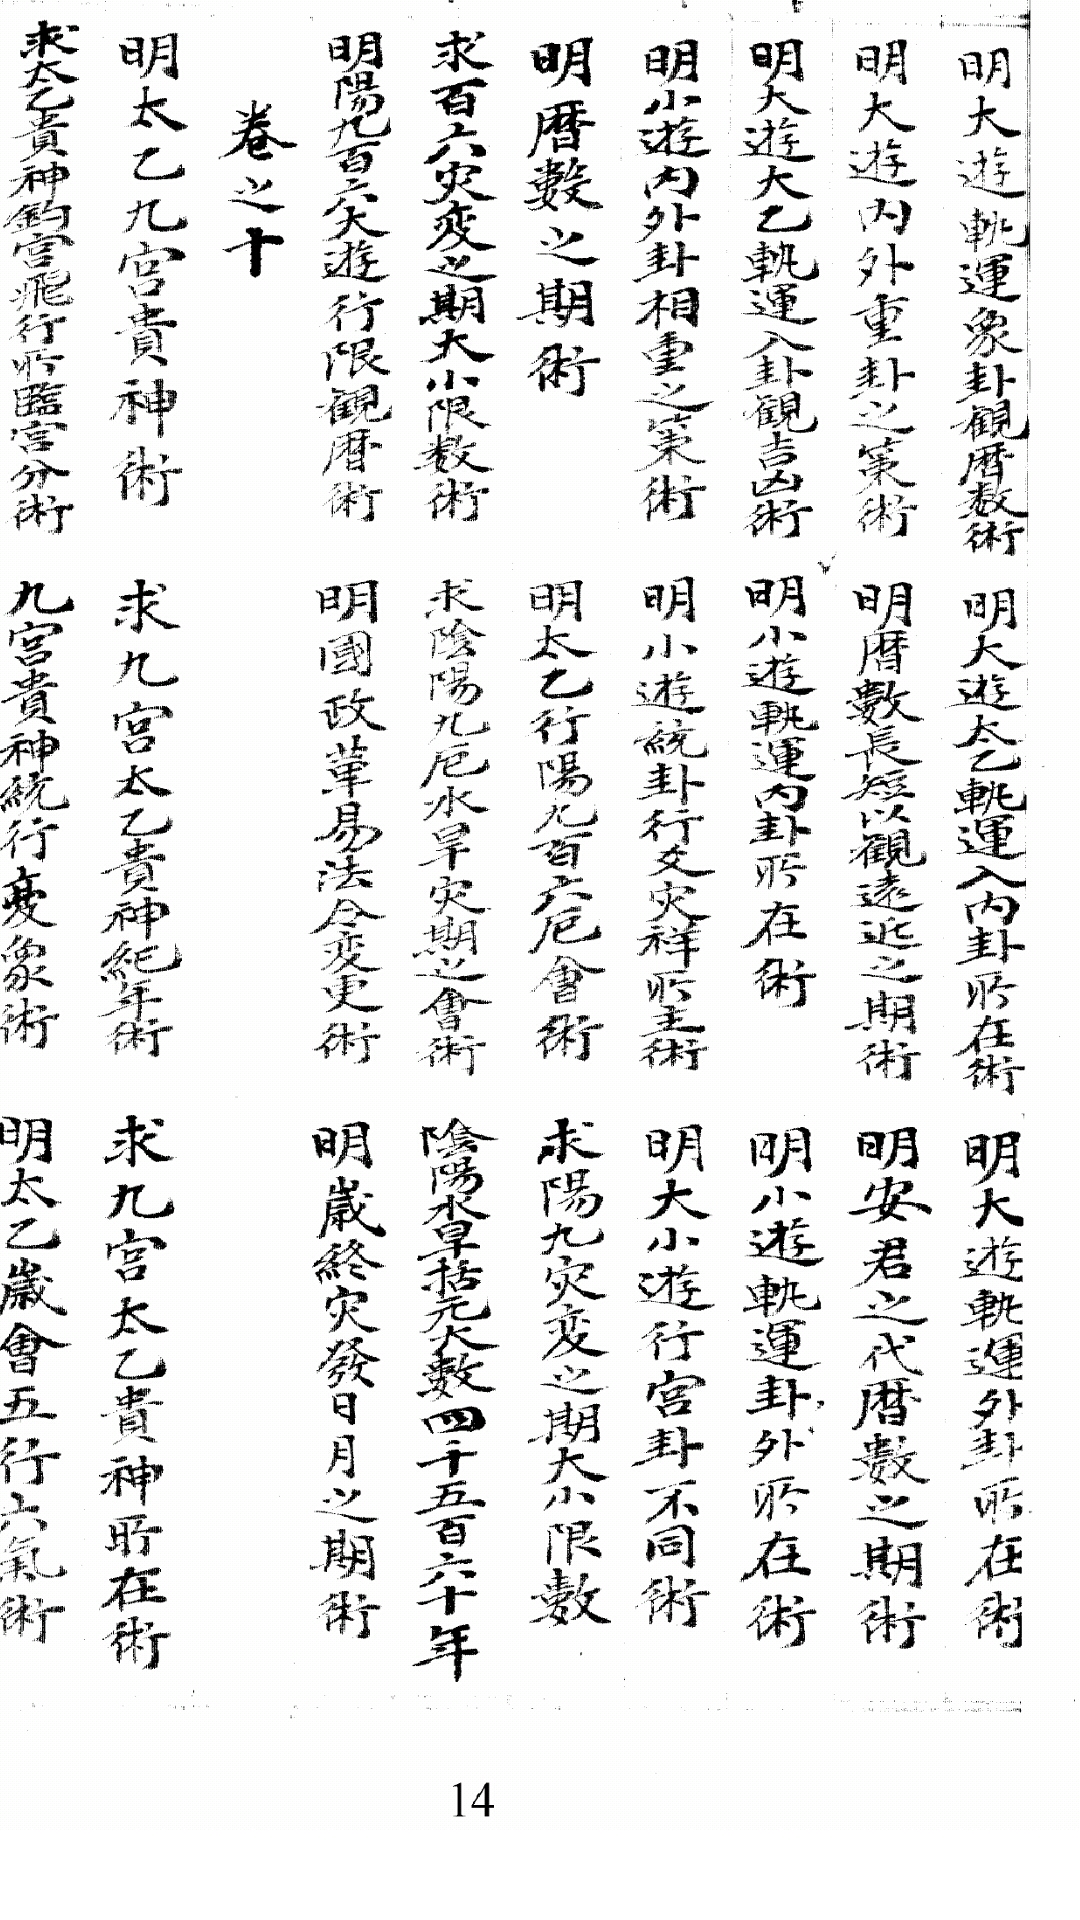 明大遊軌運象卦觀曆数術　明大遊太乙軌運入内卦所在術　明大遊軌運外卦所在術
明大遊内外重卦之策術　明曆數長短以觀遠近之期術　明安君之代曆數之期術
明大遊大乙軌運入卦觀吉凶術　明小遊軌運内卦所在術　明小遊軌運卦外所在術
明小遊内外卦相重之策術　明小遊統卦行爻灾祥所主術　明大小遊行宫卦不同術
明曆數之期術　明太乙行陽九百六厄會術　求陽九灾变之期大小限數
求百六灾变之期大小限数術　求陰陽九厄水旱灾期之會術　陰陽水旱括元大數四千五百六十年
明陽九百六大遊行限觀曆術　明國政革易法令变更術　明歲終灾發日月之期術
卷之十
明太乙九宫貴神術　求九宫太乙貴神紀年術　求九宫太乙貴神所在術
求太乙貴神釣宫飛行所臨宫分術　九宫貴神統行变象術　明太乙歲會五行六氣術
14